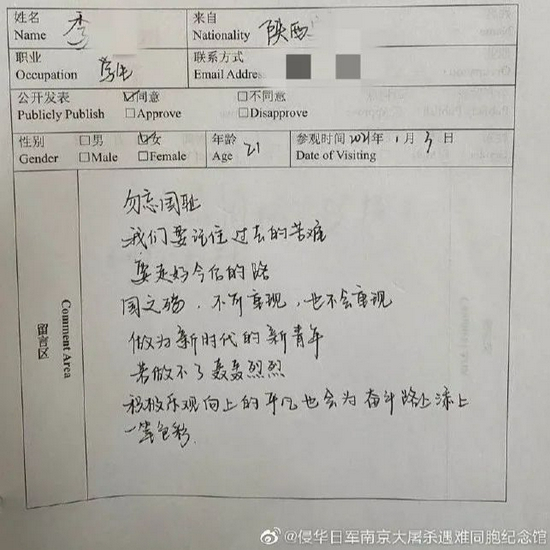 姓名 李 来自 陕西
Name Nationality
职业 学生 联系方式
Occupation Email Addres
公开发表 ☑同意 □不同意
Publicly Publish □Approve □Disapprove
性别 □男 ☑女 年龄 21 参观时间 2021年 1月 3日
Gender □Male □Female Age Date of Visiting
留言区
Comment Area
勿忘国耻
我们要记住过去的苦难
要走好今后的路
国之殇，不可重现，也不会重现
做为新时代的新青年
若做不了轰轰烈烈
积极乐观向上的平凡也会为奋斗路上添上
一笔色彩
@侵华日军南京大屠杀遇难同胞纪念馆